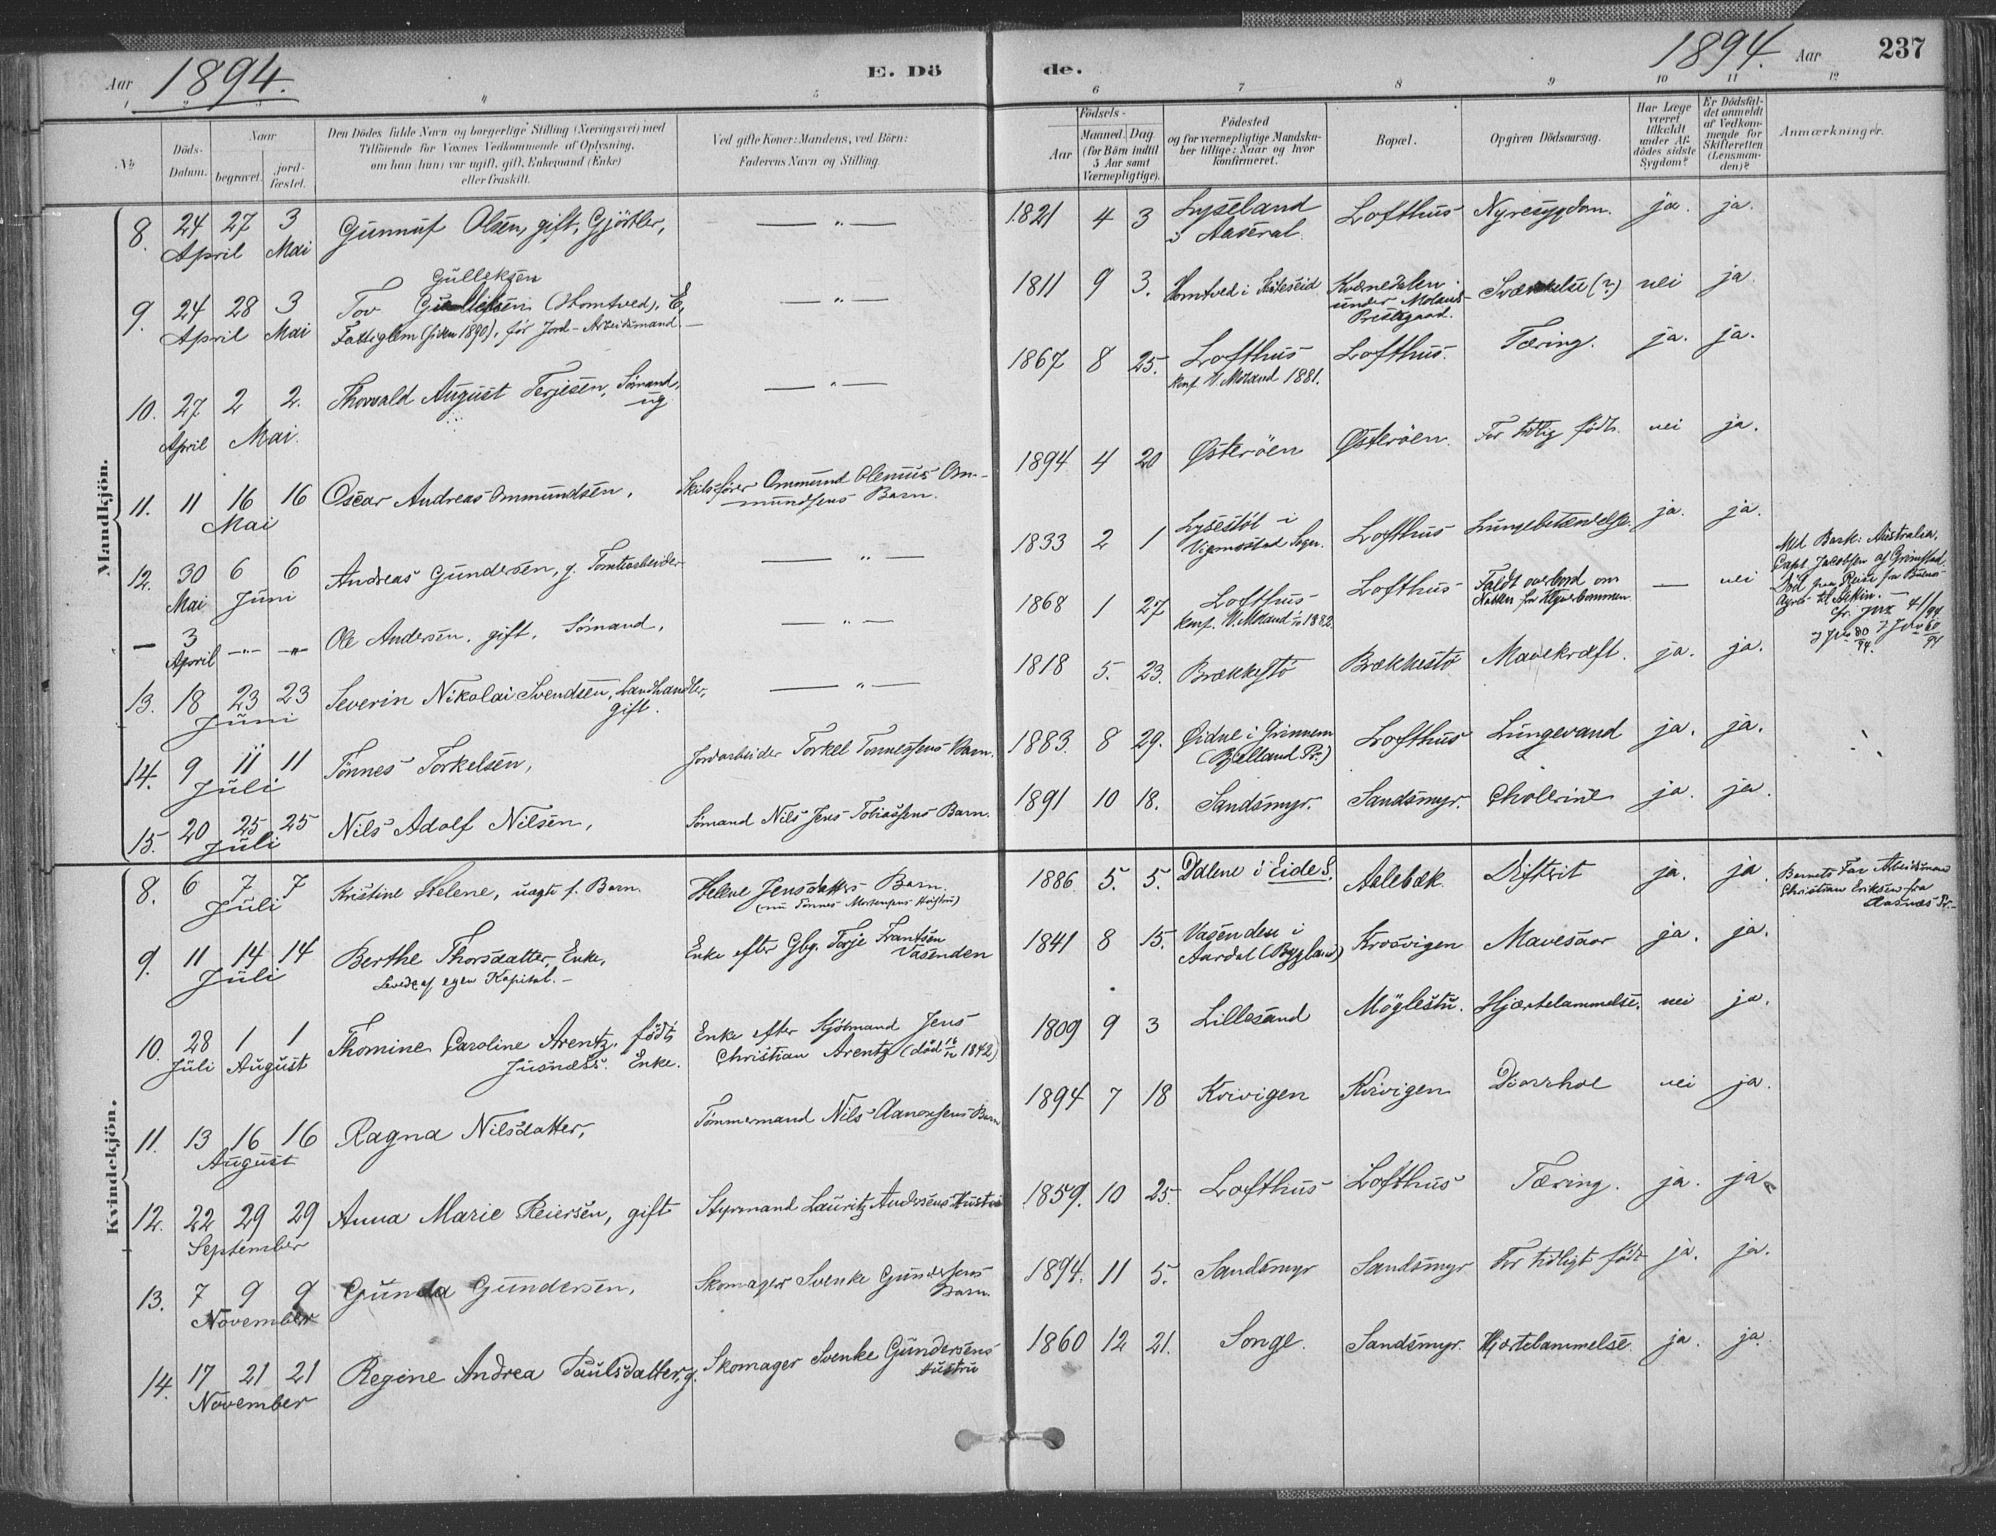 Aar 1894. E. Dö
1 2 3 4 5
№
Döds-Datum.
Naar
begravet.
jord-fæstet.
Den Dödes fulde Navn og borgerlige Stilling (Næringsvei) med
Tilföiende for Voxnes Vedkommende af Oplysning,
om han (hun) var ugift, gift, Enkemand (Enke)
eller fraskilt.
Ved gifte Koner: Mandens, ved Börn:
Faderens Navn og Stilling.
Mandkjön.
8. 24 27 3 Gunnuf Olsen, gift, Gjörtler, — " —
April Mai
Gulleksen
9. 24 28 3 Tov (Homtved). E, — " —
April Mai Fattiglem (siden 1890), för Jord-Arbeidsmand
10. 27 2 2. Thorvald August Terjesen, Sömand, — " —
April Mai. ug
11. 11 16 16 Oscar Andreas Ommundsen, Skibsförer Ommund Olenius Om-
Mai mundsens Barn.
12. 30 6 6 Andreas Gundersen, g. Tomtearbeider — " —
Mai Juni
— 3 —"— —"— Ole Andersen, gift, Sömand, — " —
April
13. 18 23 23 Severin Nikolai Svendsen, Landhandler, — " —
Juni gift.
14. 9 11 11 Tönnes Torkelsen, Jordarbeider Torkel Tönnesens Barn.
Juli
15. 20 25 25 Nils Adolf Nilsen, Sömand Nils Jens Tobiassens Barn.
Juli
Kvindekjön.
8. 6 7 7 Kristine Helene, uægte f. Barn. Helene Jensdatters Barn.
Juli (nu Tönnes Mortensens Hustru)
9. 11 14 14 Berthe Thorsdatter, Enke, Enke efter Gbg. Torje Frantsen
Juli Levede af egen Kapital. — Vasenden
10. 28 1 1 Thomine Caroline Arentz, födt Enke efter Sjömand Jens
Juli August Jusnæss. Enke. Christian Arentz (död 16/12 1842)
11. 13 16 16 Ragna Nilsdatter, Tömmermand Nils Aanonsens Barn
August
12. 22 29 29 Anna Marie Reiersen, gift Styrmand Lauritz Andersens Hustru
September
13. 7 9 9 Gunda Gundersen, Skomager Svenke Gundersens
November Barn.
14. 17 21 21 Regine Andrea Paulsdatter, g. Skomager Svenke Gundersens
November Hustru
de. 1894. Aar 237
6 7 8 9 10 11 12
Födsels-
Aar
Maaned. Dag
(for Börn indtil
5 Aar samt
Værnepligtige).
Födested
og for værnepligtige Mandska-
ber tillige: Naar og hvor
konfirmeret.
Bopæl.
Opgiven Dödsaarsag.
Har Læge
været
tilkaldt
under Af-
dödes sidste
Sygdom?
Er Dödsfal-
det anmeldt
af Vedkom-
mende for
Skifteretten
(Lensman-
den)?
Anmærkninger.
1821 4 3 Lyseland Lofthus Nyresygdom. ja. ja.
i Aaseral.
1811 9 3. Homtved i Hviteseid Kvernedalen Svækkelse (?) nei ja
under Moland
Prestegaard.
1867 8 25. Lofthus Lofthus. Tæring. ja. ja.
Konf. V. Moland 1881.
1894 4 20 Østeröen Østeröen. For tidlig födt. nei ja.
1833 2 1 Lysestöl i Lofthus Lungebetændelse. ja. ja.
Vigmostad Sogn.
1868 1 27 Lofthus Lofthus Faldt overbord om — nei
Konf. V. Moland 1/10 1882. Natten fra Klyverbommen.
Med Bark: Australia,
Capt Jacobsen af Grimstad.
Död paa Reise fra Buenos
Ayres til
1818 5. 23. Brækkestö Brækkestö Mavekræft. ja. ja.
1883. 8 29. Øidne i Grinnem Lofthus Lungevand ja. ja.
(Bjelland Pr.)
1891 10 18. Sandsmyr. Sandsmyr. Cholerine ja. ja.
1886 5. 5. Dalene i Eide S. Aalebæk. Difterit ja. ja.
Barnets Far Arbeidsmand
Christian Eriksen fra
1841 8 15. Vasenden i Krosvigen Mavesaar ja. ja.
Aardal (Bygland)
1809 9 3 Lillesand Möglestu. Hjærtelammelse. nei ja.
1894 7 18 Kvivigen Kvivigen Diarrhoe nei ja.
1859. 10 25. Lofthus Lofthus Tæring. ja. ja
1894. 11 5. Sandsmyr Sandsmyr For tidligt födt ja. ja.
1860 12 21. Songe. Sandsmyr. Hjærtelammelse ja. ja.